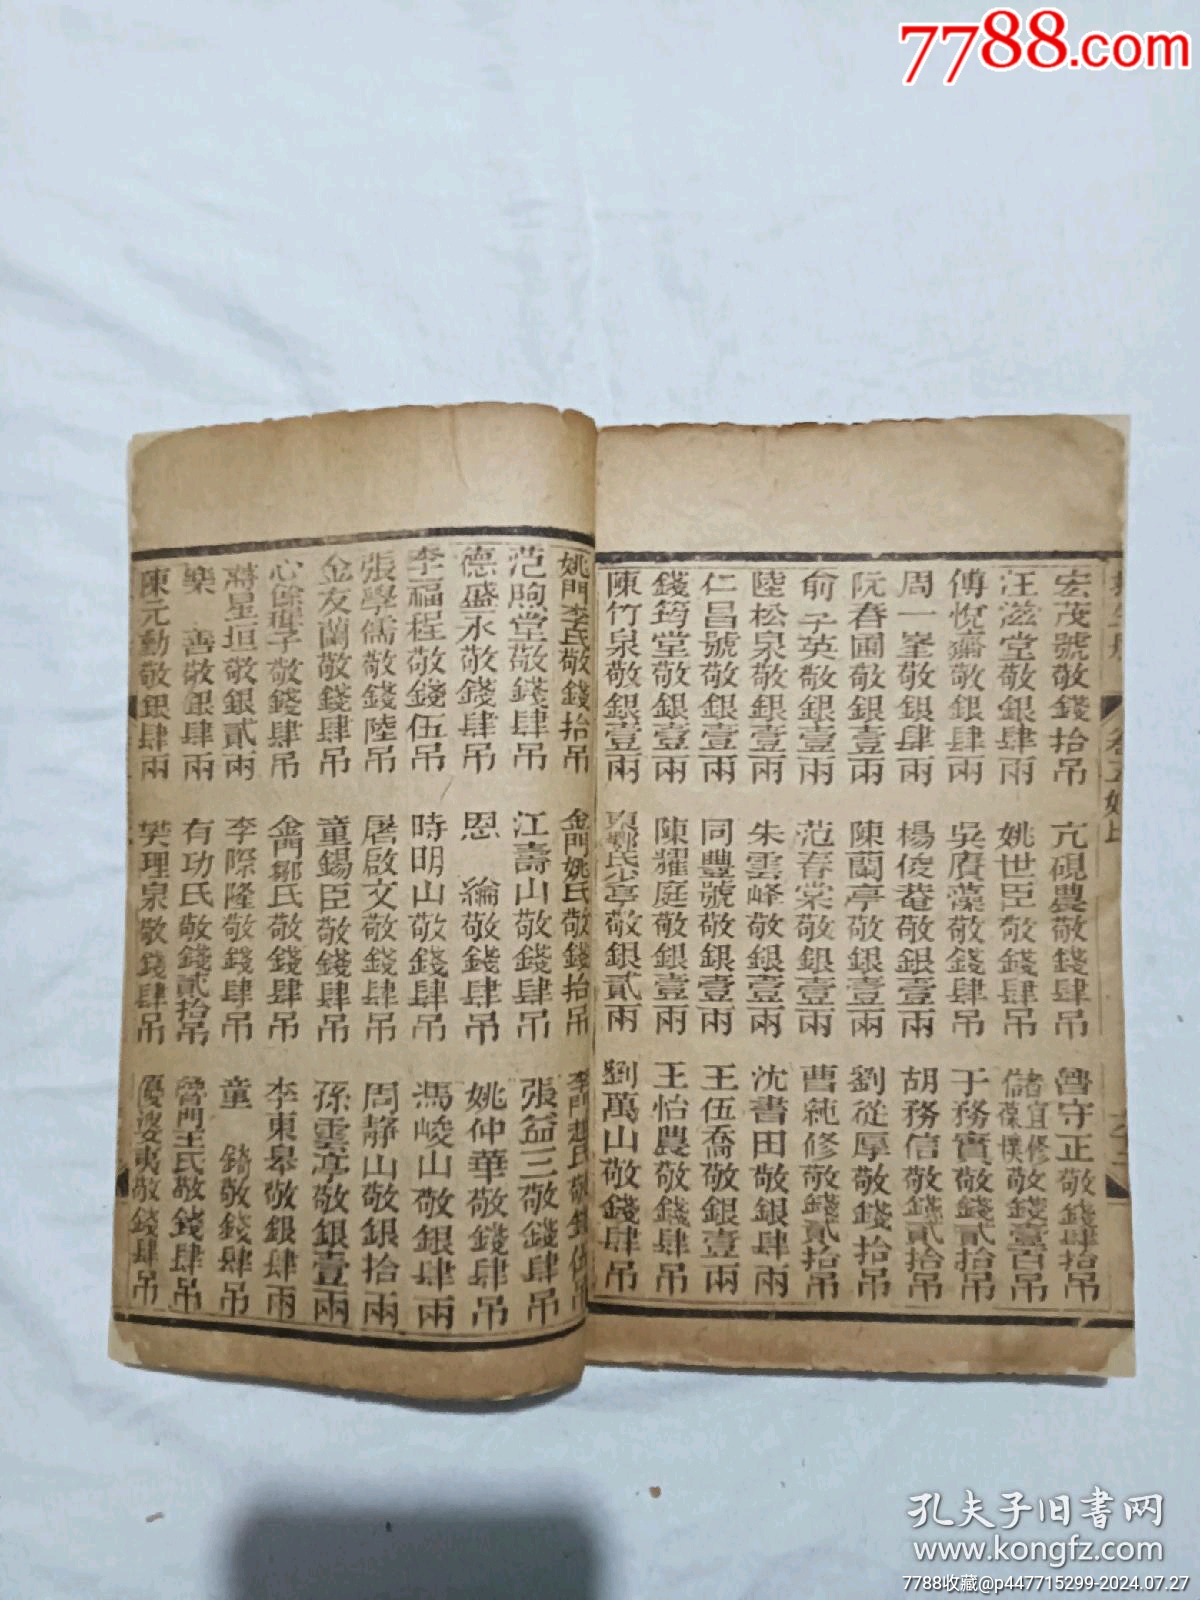 7788.com
宏茂號敬錢拾吊 亢硯農敬錢肆吊 魯守正敬錢肆拾吊
汪滋堂敬銀肆兩 姚世臣敬錢肆吊 儲宜修葆樸敬錢壹百吊
傅悅齋敬銀肆兩 吳賡藻敬錢肆吊 于務實敬錢貳拾吊
周一峯敬銀肆兩 楊俊菴敬銀壹兩 胡務信敬錢貳拾吊
阮春圃敬銀壹兩 陳蘭亭敬銀壹兩 劉從厚敬錢拾吊
俞子英敬銀壹兩 范春棠敬銀壹兩 曹純修敬錢貳拾吊
陸松泉敬銀壹兩 朱雲峰敬銀壹兩 沈書田敬銀肆兩
仁昌號敬銀壹兩 同豐號敬銀壹兩 王伍喬敬銀壹兩
錢筠堂敬銀壹兩 陳耀庭敬銀壹兩 王怡農敬錢肆吊
陳竹泉敬銀壹兩 氏少亭敬銀貳兩 劉萬山敬錢肆吊
姚門李氏敬錢拾吊 金門姚氏敬錢拾吊 李門趙氏敬錢伍吊
范煦堂敬錢肆吊 江壽山敬錢肆吊 張益三敬錢肆吊
德盛永敬錢肆吊 恩綸敬錢肆吊 姚仲華敬錢肆吊
李福程敬錢伍吊 時明山敬錢肆吊 馮峻山敬銀肆兩
張學儒敬錢陸吊 屠啟文敬錢肆吊 周靜山敬銀拾兩
金友蘭敬錢肆吊 童錫臣敬錢肆吊 孫雲亭敬銀壹兩
心餘子敬錢肆吊 金門鄒氏敬錢肆吊 李東皋敬銀肆兩
星垣敬銀貳兩 李際隆敬錢肆吊 童錡敬錢肆吊
樂善敬銀肆兩 有功氏敬錢貳拾吊 門王氏敬錢肆吊
陳元勳敬銀肆兩 樊理泉敬錢肆吊 優婆夷敬錢肆吊
孔夫子旧书网
www.kongfz.com
7788收藏@p447715299-2024.07.27